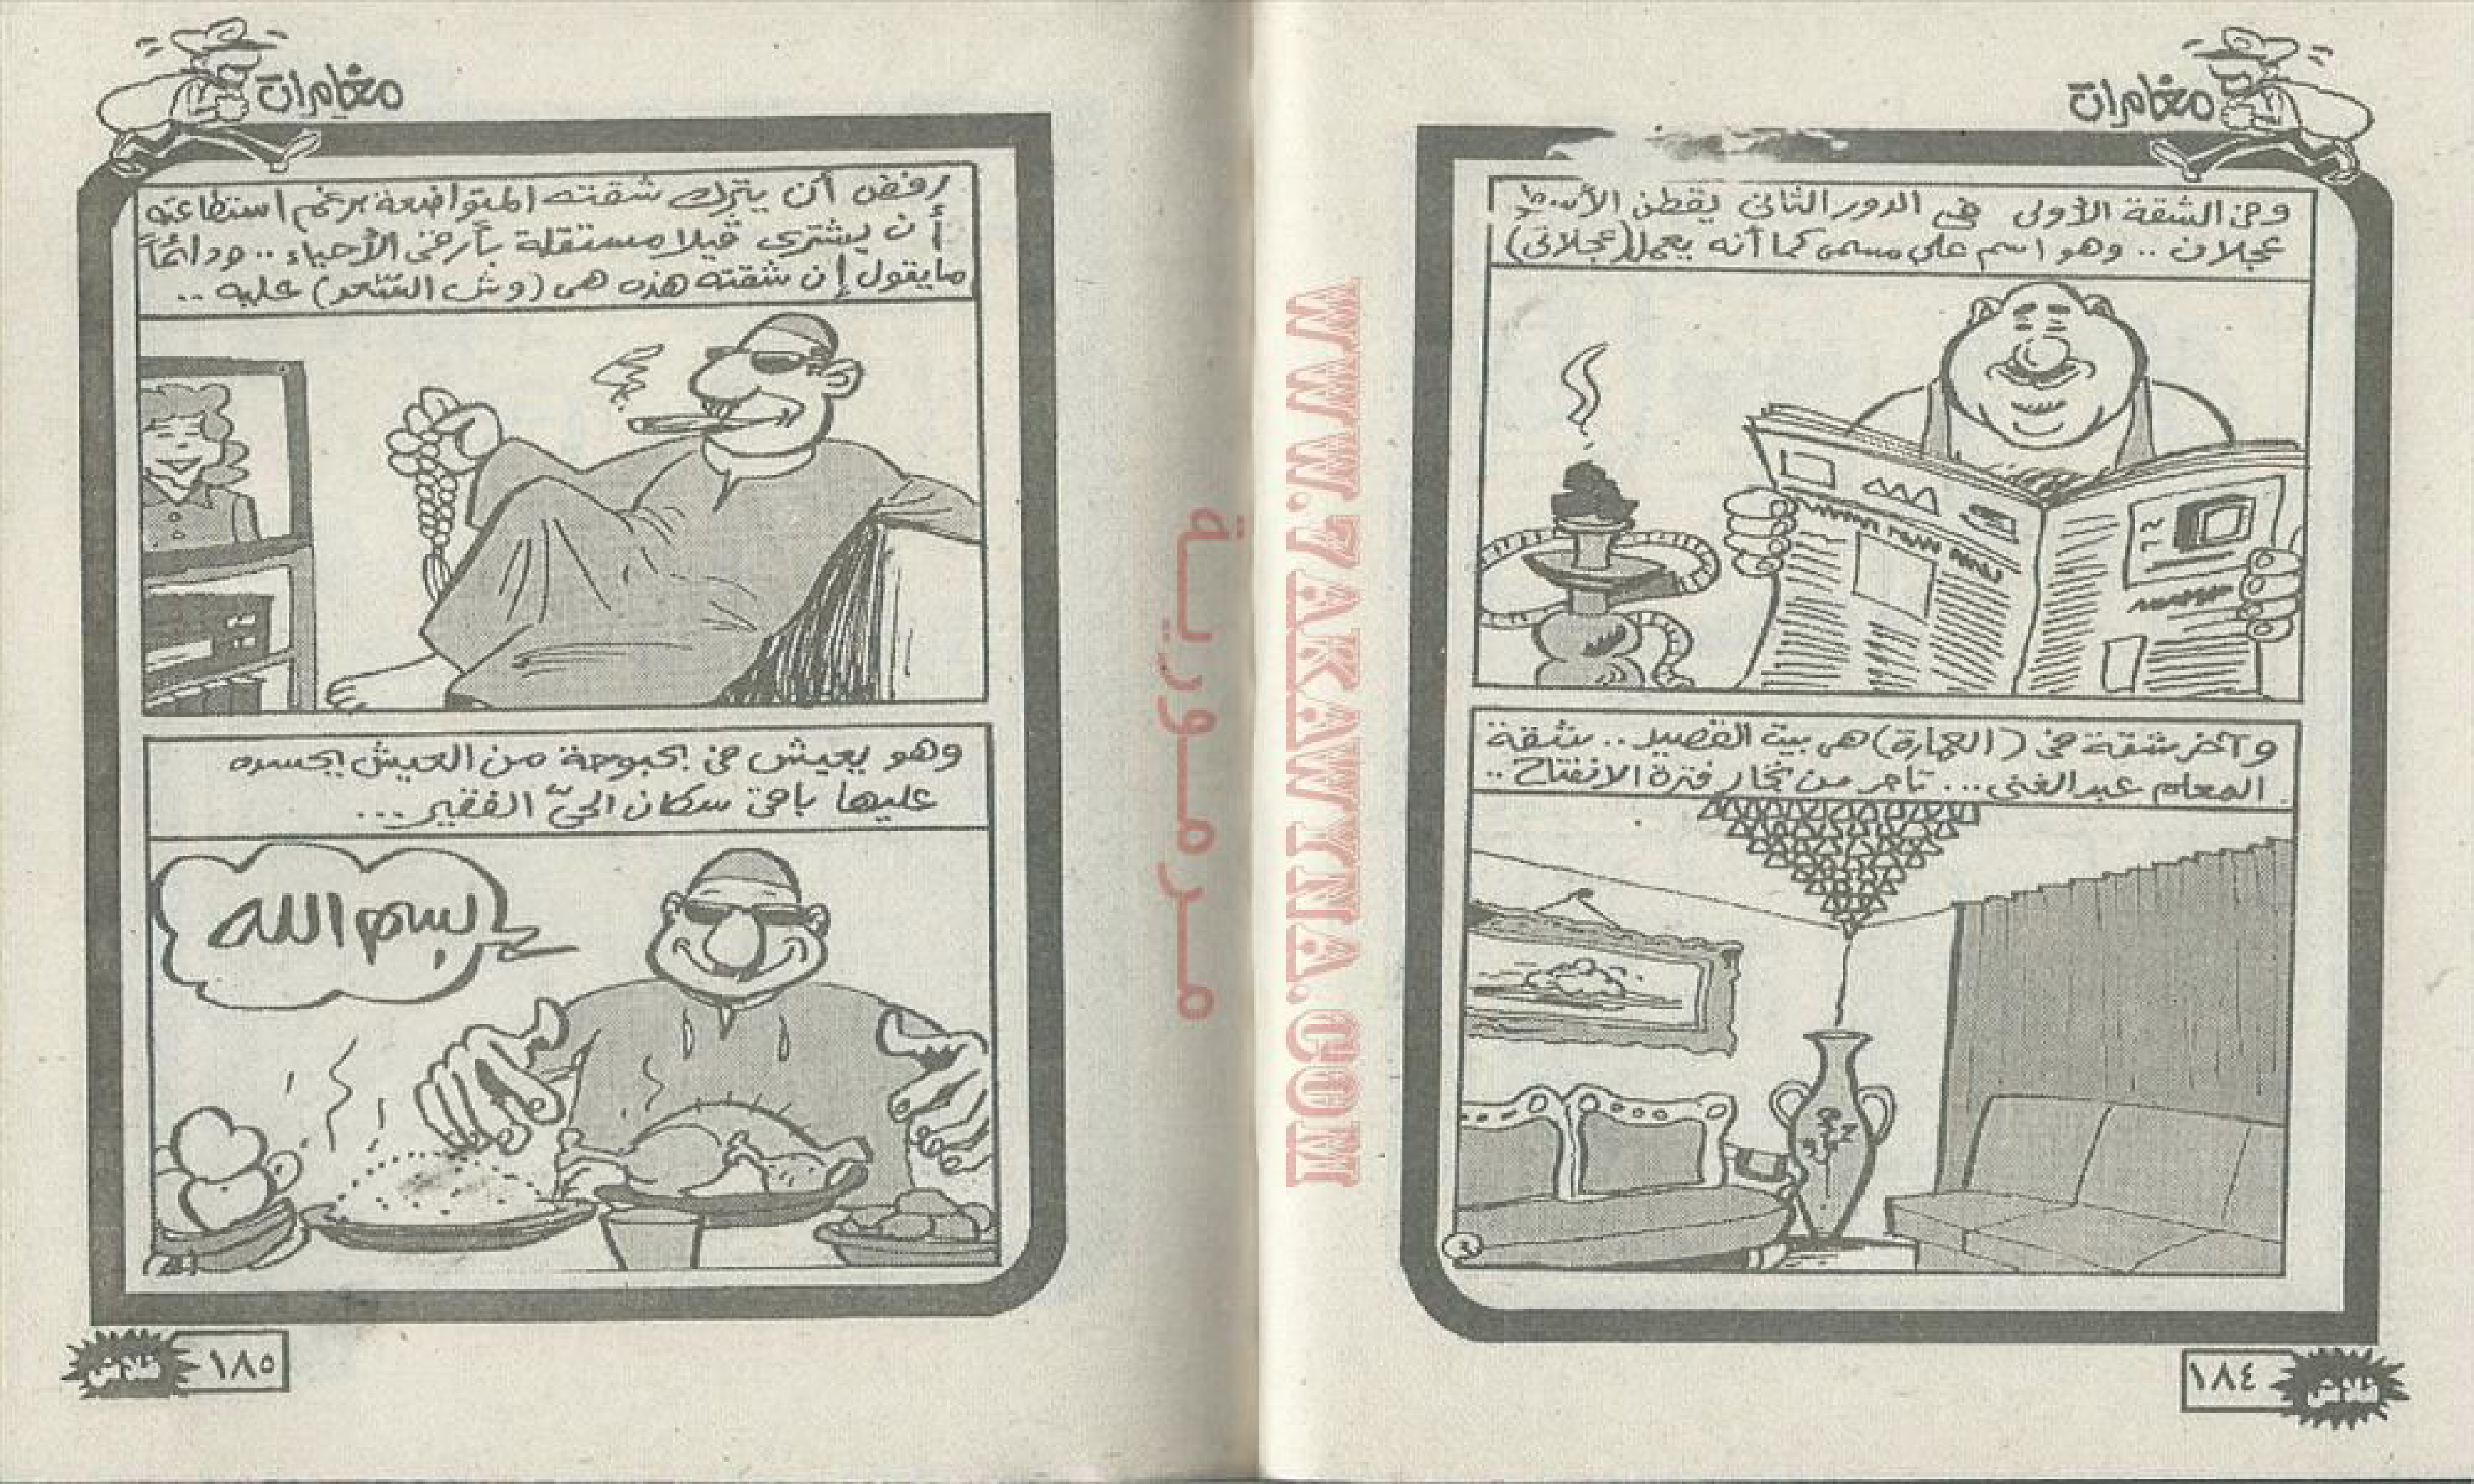 مغامرات
وفى الشقة الأولى فى الدور الثانى يقطن الأسطى
عجلان .. وهو اسم على مسمى كما أنه يعمل (عجلاتى)
وآخر شقة فى (العمارة) هى بيت القصيد .. شقة
المعلم عبد الغنى ... تاجر من تجار فترة الانفتاح ..
١٨٤
فلاش
مغامرات
رفض أن يترك شقته المتواضعة برغم استطاعته
أن يشترى ڤيلا مستقلة بأرقى الأحياء .. ودائماً
مايقول إن شقته هذه هى (وش السّعد) عليه ..
وهو يعيش فى بحبوحة من العيش يحسده
عليها باقى سكان الحىّ الفقير ...
بسم الله
١٨٥
فلاش
WWW.7AKAWYNA.COM
مرمورية